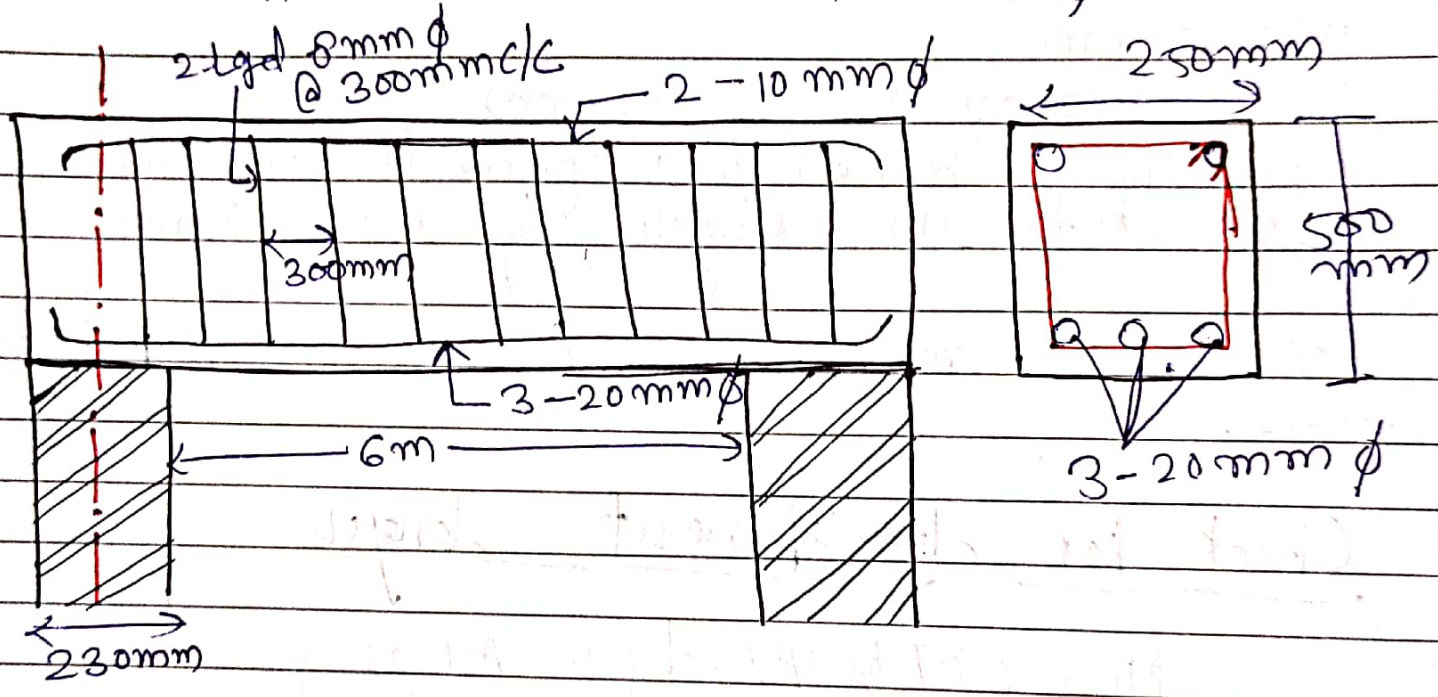 2 lgd 8mm ϕ
@ 300mm c/c
2 - 10 mm ϕ
250mm
300mm
500
mm
3-20mmϕ
6m
3-20mm ϕ
230mm